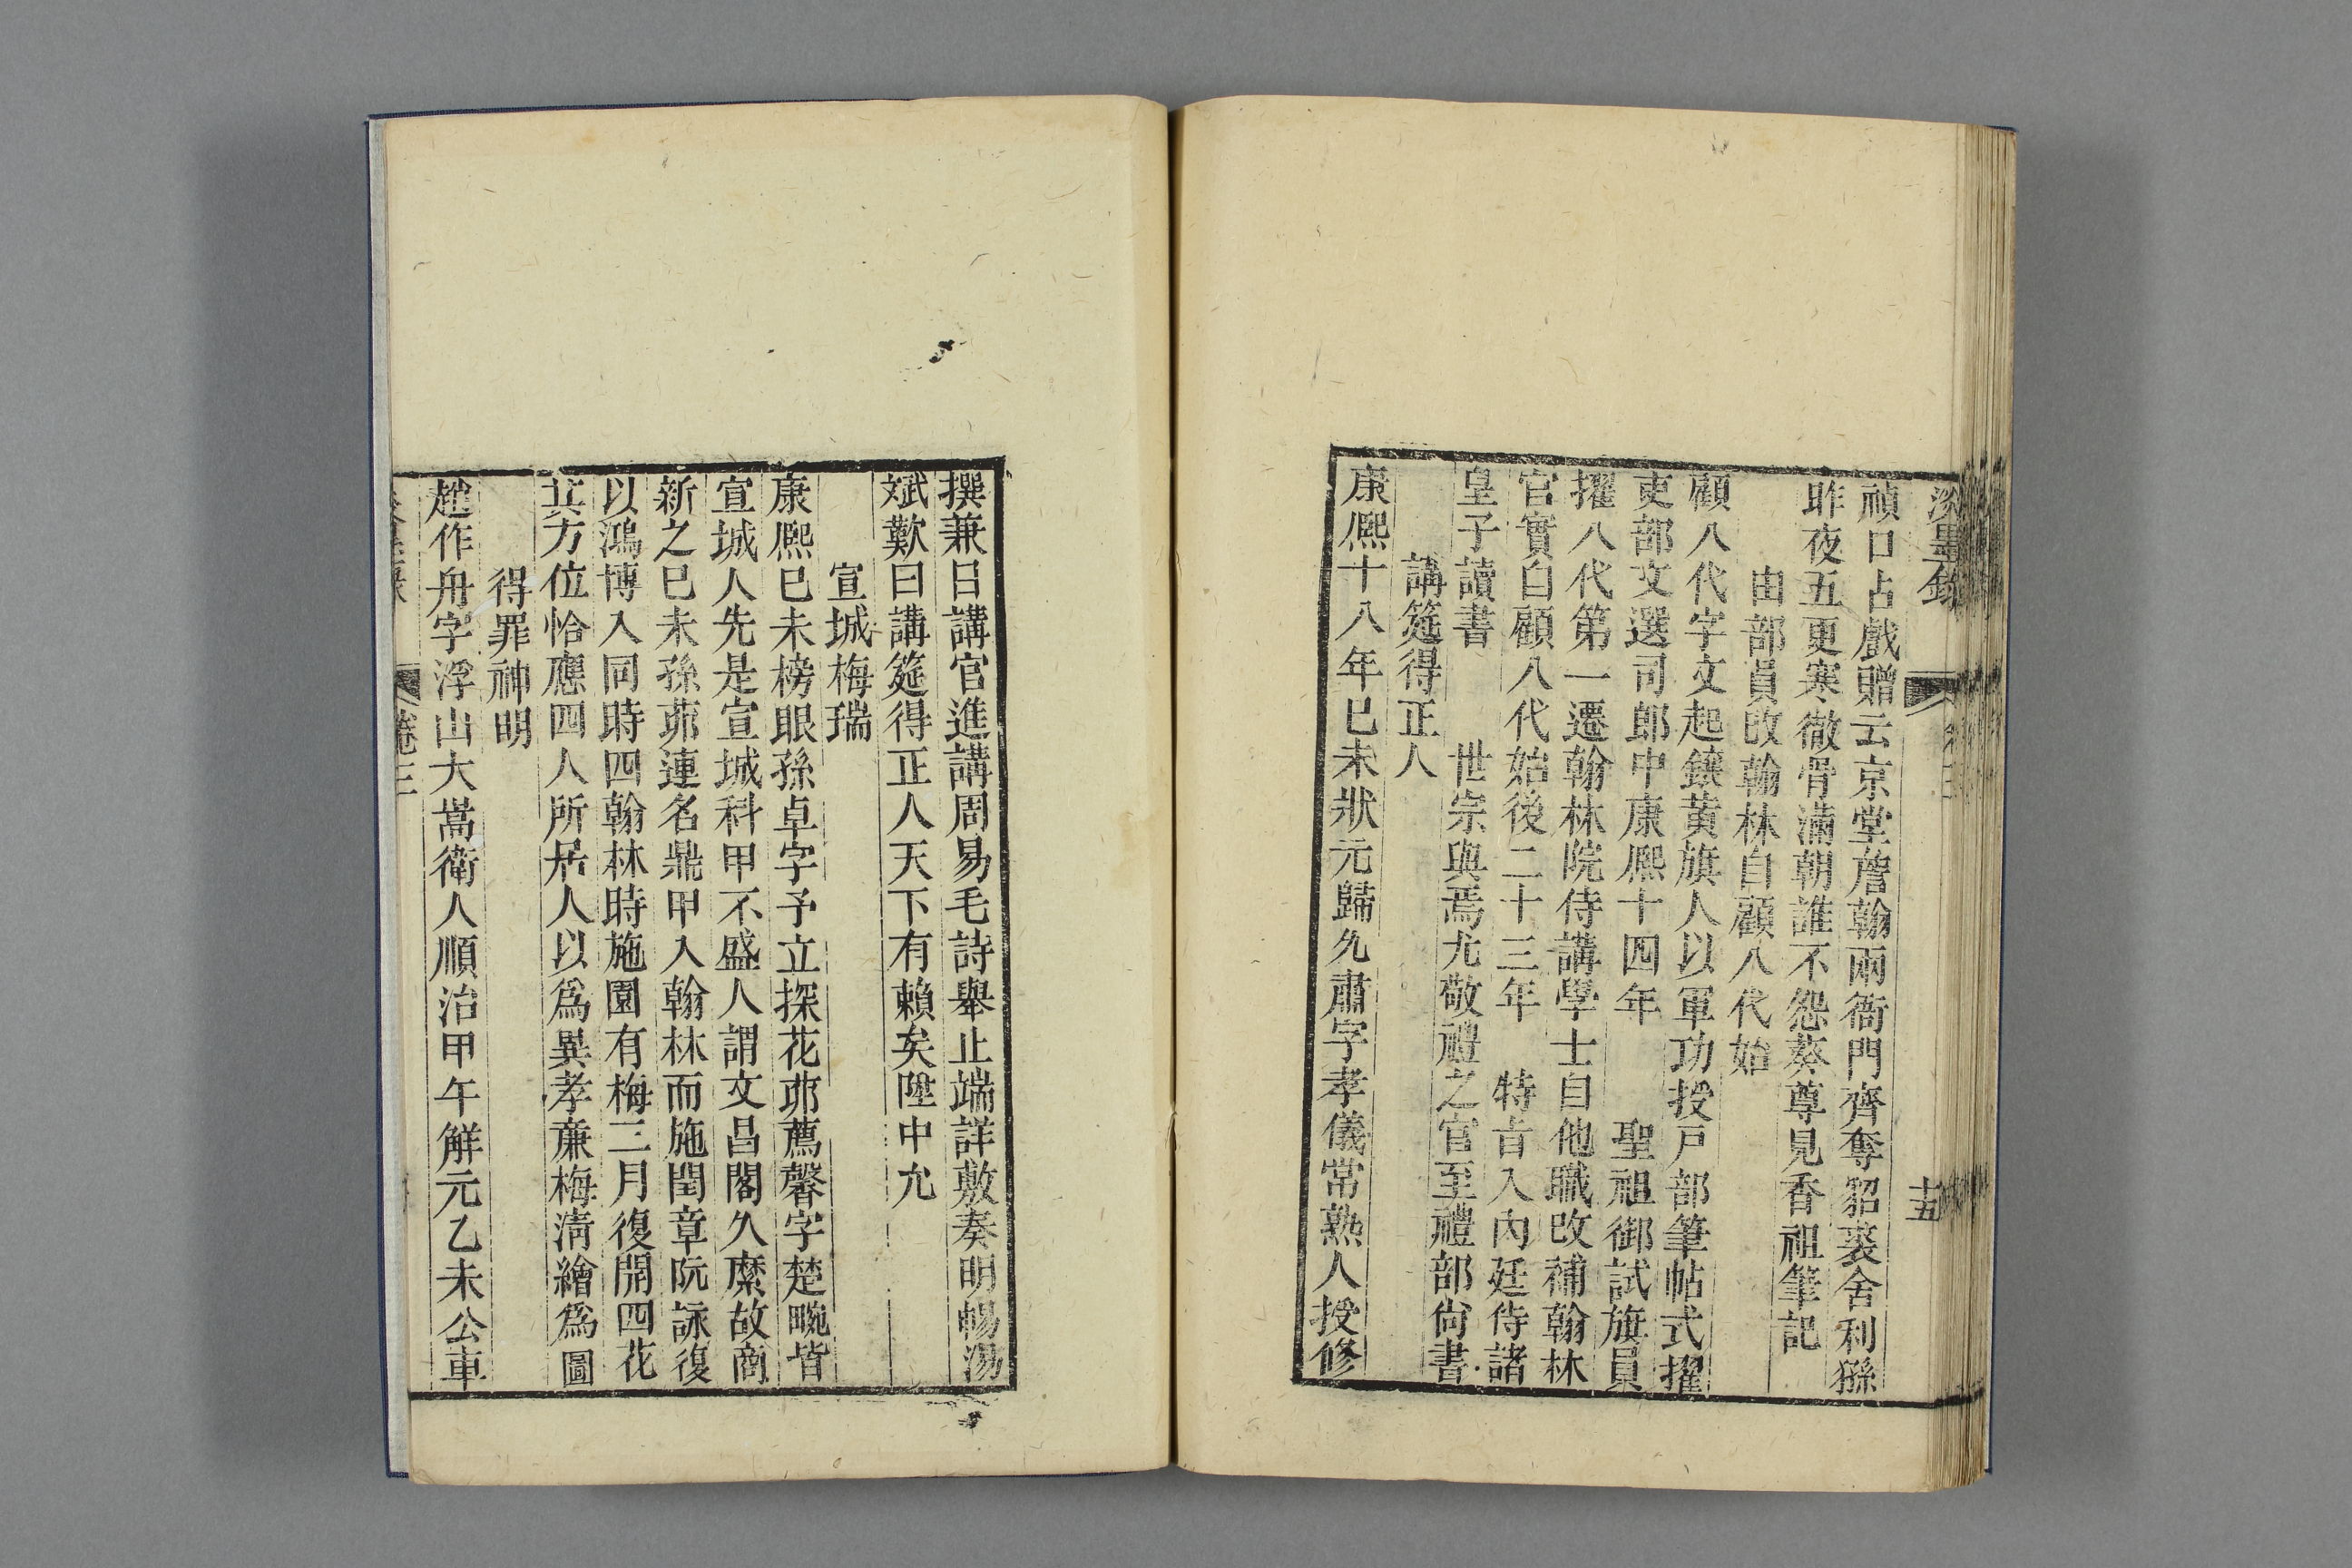 淡墨錄
卷三
十五
禎口占戲贈云京堂詹翰兩衙門齊奪貂裘舍利猻
昨夜五更寒徹骨滿朝誰不怨葵尊見香祖筆記
由部員改翰林自顧八代始
顧八代字文起鑲黃旗人以軍功授戸部筆帖式擢
吏部文選司郎中康熙十四年　聖祖御試旗員
擢八代第一遷翰林院侍講學士自他職改補翰林
官實自顧八代始後二十三年　特旨入內廷侍諸
皇子讀書　世宗與焉尤敬禮之官至禮部尙書
講筵得正人
康熙十八年巳未狀元歸允肅字孝儀常熟人授修
撰兼日講官進講周易毛詩舉止端詳敷奏明暢湯
斌歎曰講筵得正人天下有賴矣陞中允
宣城梅瑞
康熙巳未榜眼孫卓字予立探花茆薦馨字楚畹皆
宣城人先是宣城科甲不盛人謂文昌閣久縻故商
新之巳未孫茆連名鼎甲入翰林而施閏章阮詠復
以鴻博入同時四翰林時施園有梅三月復開四花
其方位恰應四人所居人以爲異孝亷梅淸繪爲圖
得罪神明
趙作舟字浮山大嵩衛人順治甲午解元乙未公車
卷三